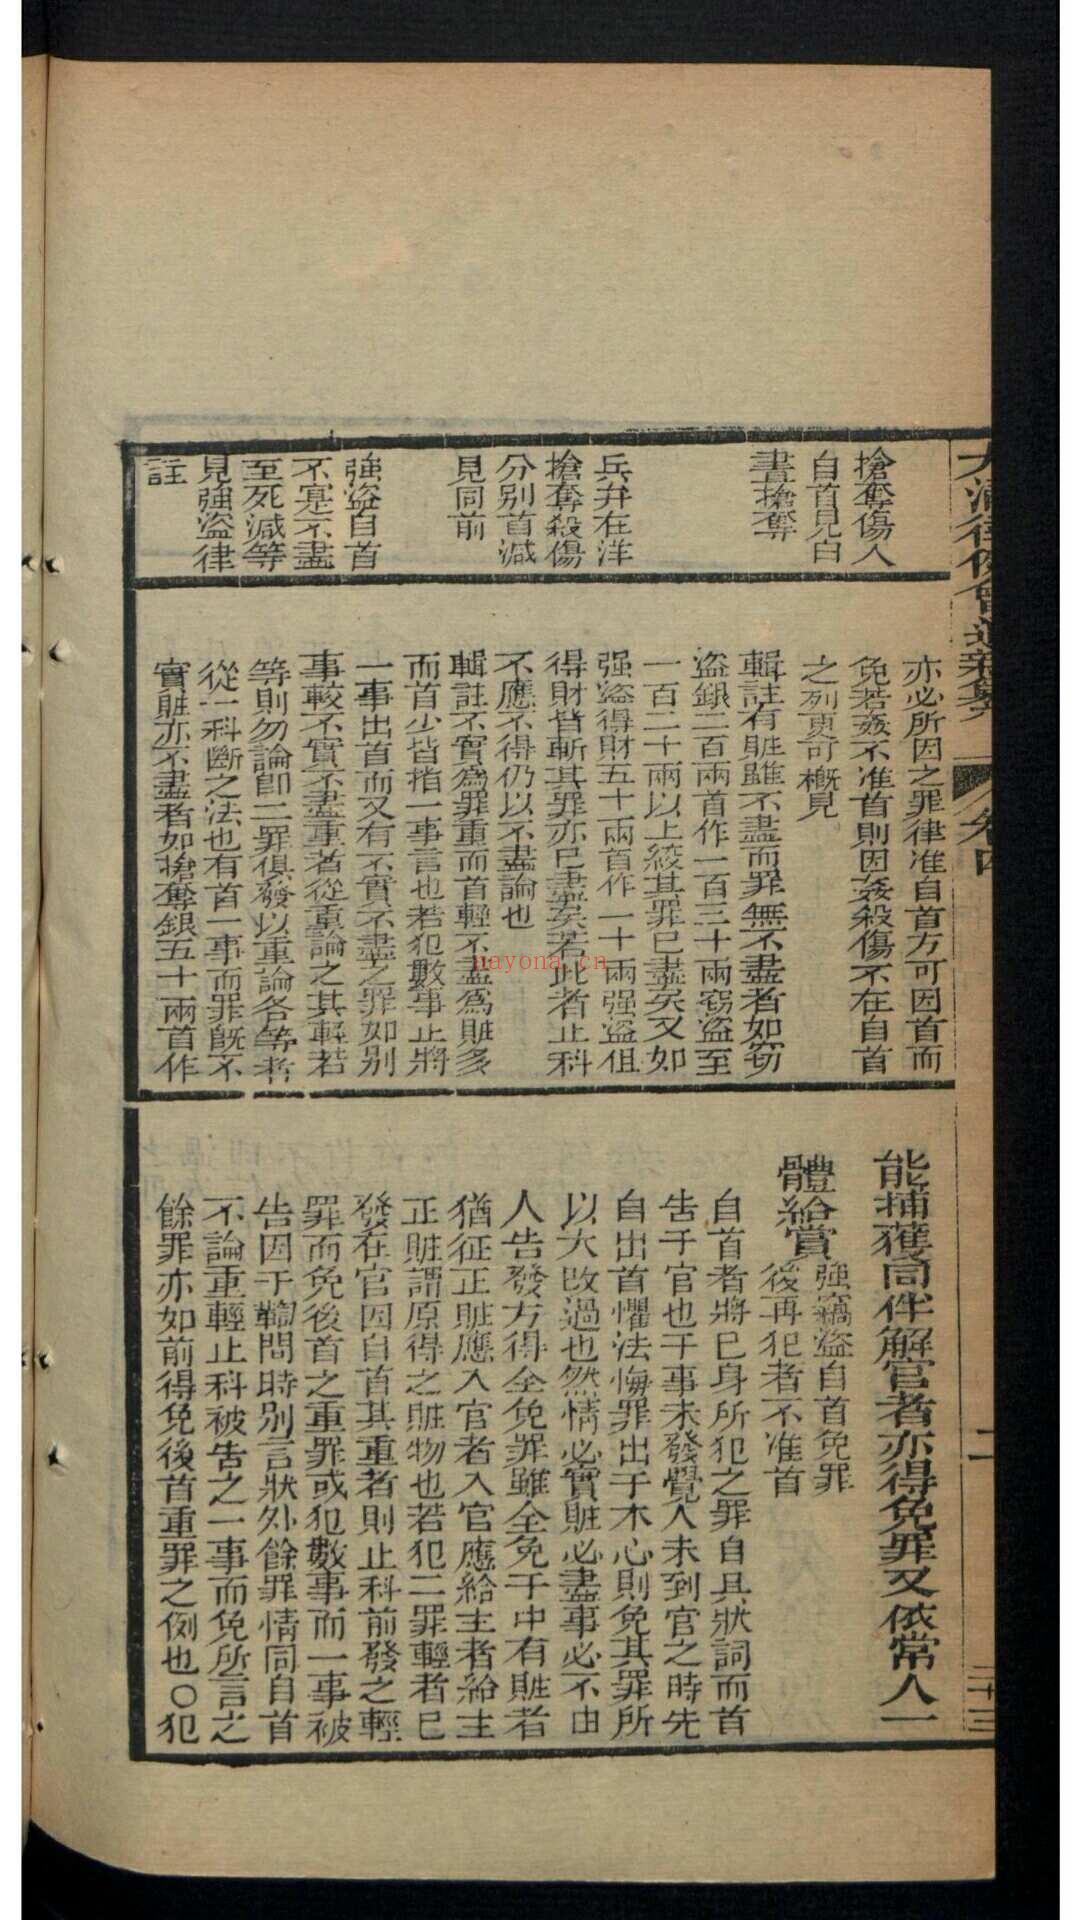 大清律例會通新纂
卷四
二
二十三
搶奪傷人
自首見白
晝搶奪
兵弁在洋
搶奪殺傷
分別首減
見同前
強盜自首
不寔不盡
至死減等
見強盜律
註
亦必所因之罪律准自首方可因首而
免若姦不准首則因姦殺傷不在自首
之列更可概見
輯註有賍雖不盡而罪無不盡者如窃
盜銀二百兩首作一百三十兩窃盜至
一百二十兩以上絞其罪已盡矣又如
强盜得財五十兩首作一十兩强盜但
得財皆斬其罪亦已盡矣若此者止科
不應不得仍以不盡論也
輯註不實為罪重而首輕不盡為賍多
而首少皆指一事言也若犯數事止將
一事出首而又有不實不盡之罪如别
事較不實不盡重者從重論之其輕若
等則勿論卽二罪俱發以重論各等者
從一科斷之法也有首一事而罪旣不
實賍亦不盡者如搶奪銀五十兩首作
能捕獲同伴解官者亦得免罪又依常人一
體給賞
強竊盜自首免罪
後再犯者不准首
自首者將巳身所犯之罪自具狀詞而首
告于官也于事未發覺人未到官之時先
自出首懼法悔罪出于本心則免其罪所
以大改過也然情必實賍必盡事必不由
人告發方得全免罪雖全免于中有賍者
猶征正賍應入官者入官應給主者給主
正賍謂原得之賍物也若犯二罪輕者已
發在官因自首其重者則止科前發之輕
罪而免後首之重罪或犯數事而一事被
告因于鞫問時别言狀外餘罪情同自首
不論重輕止科被告之一事而免所言之
餘罪亦如前得免後首重罪之例也〇犯
nayona.cn